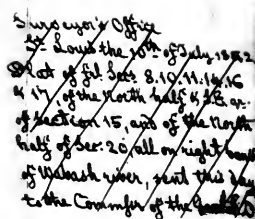 Surveyor's Office
St. Louis the 10th of July 1852
Plat of fl. Secs. 8.10.11.14.16
& 17, of the North half & S.E. qr.
of Section 15, and of the North
half of Sec. 20 all on right bank
of Wabash river, sent this day
to the Commr of the